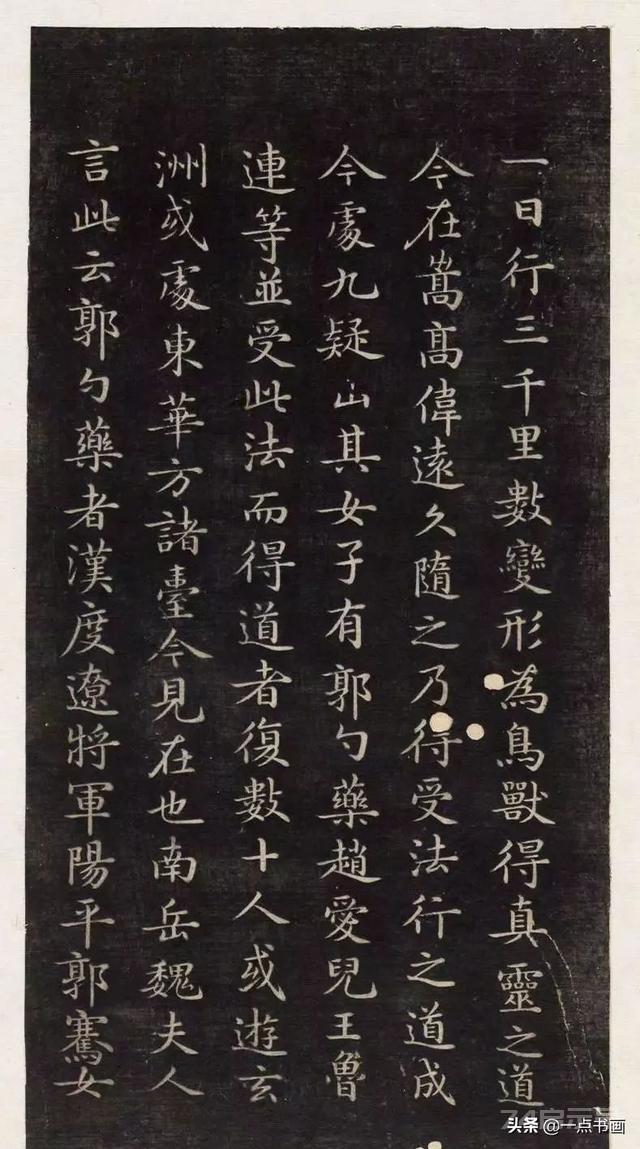 一日行三千里數變形為鳥獸得真靈之道
今在嵩高偉遠久隨之乃得受法行之道成
今處九疑山其女子有郭勺藥趙愛兒王魯
連等並受此法而得道者復數十人或遊玄
洲或處東華方諸臺今見在也南岳魏夫人
言此云郭勺藥者漢度遼將軍陽平郭騫女
头条 @一点书画